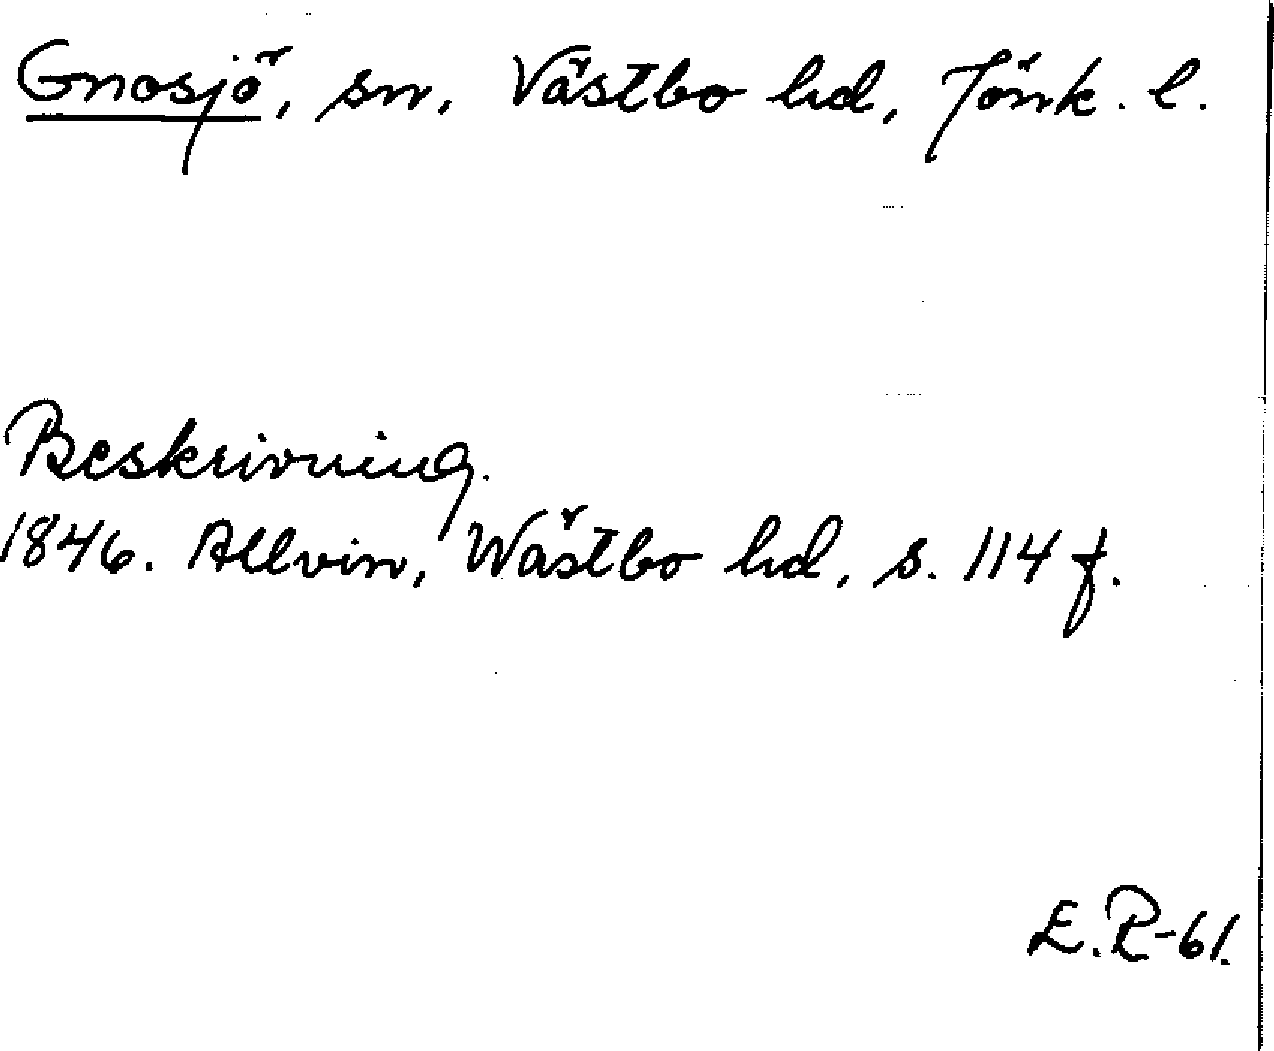 Gnosjö, sn, Västbo hd, Jönk. l.
Beskrivning.
1846. Allvin, Wästbo hd, s. 114 f.
E.R-61.